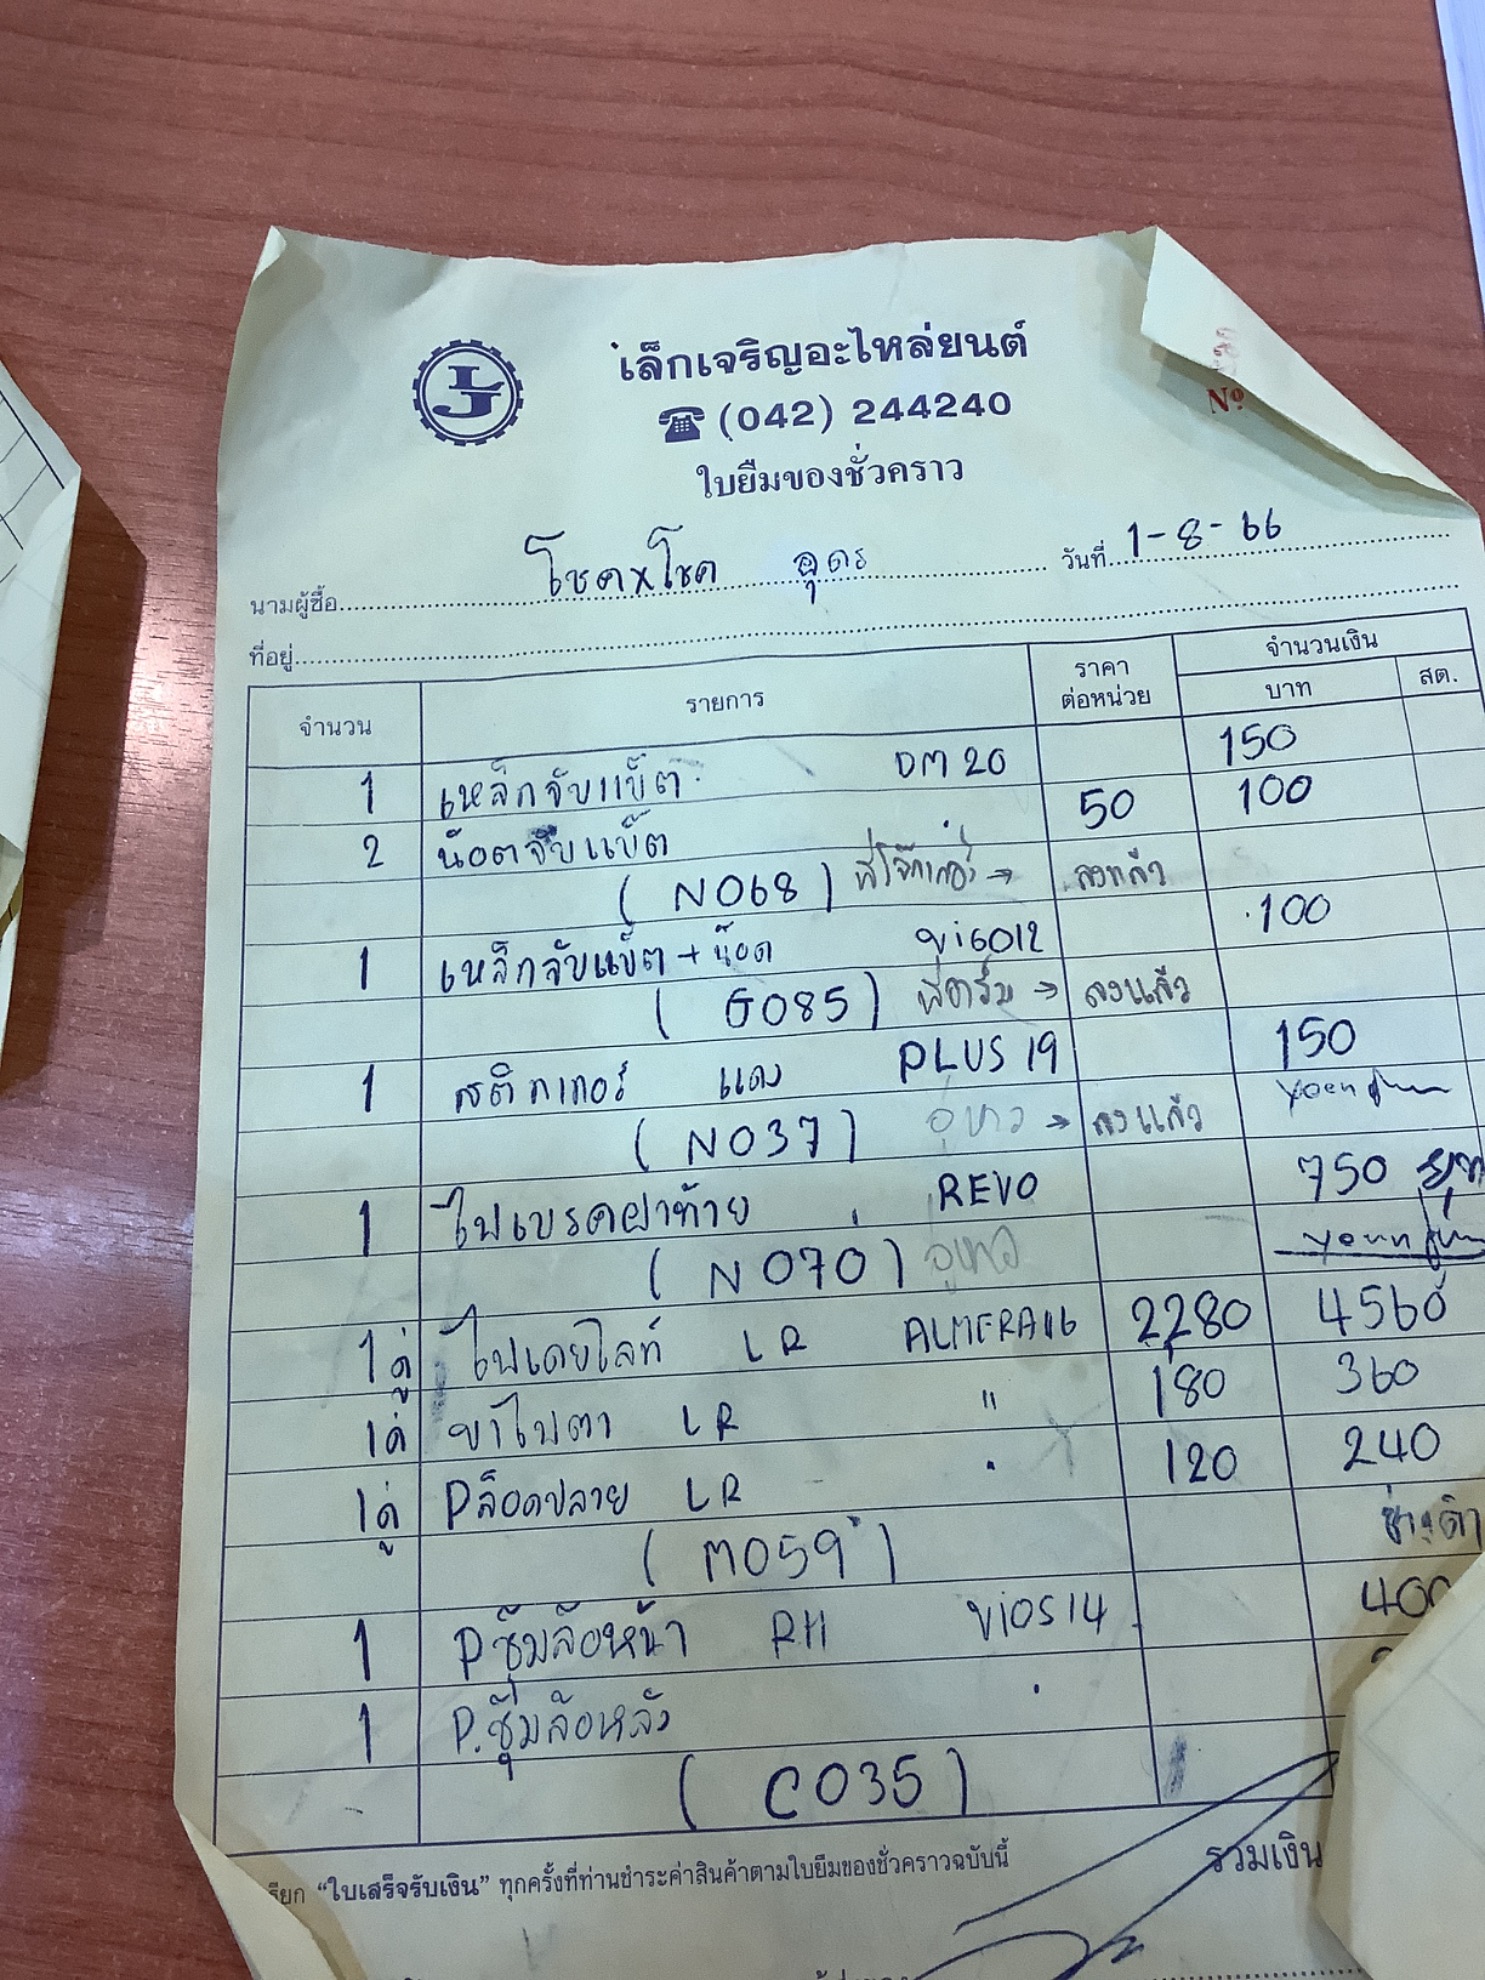 เล็กเจริญอะไหล่ยนต์
☎ (042) 244240
Nº
ใบยืมของชั่วคราว
นามผู้ซื้อ โชคxโชค อุดร วันที่ 1-8-66
ที่อยู่
จำนวน รายการ ราคาต่อหน่วย จำนวนเงิน บาท สต.
1 เหล็กจับแบ็ต DM20 150
2 น๊อตจับแบ็ต 50 100
(N068) ลงแล้ว
1 เหล็กจับแบ็ต + น๊อต 100
(G085) → ลงแล้ว
1 สติกเกอร์ แดง PLUS 19 150
(N037) อู่ขาว → ลงแล้ว
1 ไฟเบรคฝาท้าย REVO 750
(N070)
1คู่ ไฟเดย์ไลท์ LR ALMERA 2280 4560
1คู่ ขาไฟตา LR " 180 360
1คู่ Pล็อคปลาย LR " 120 240
(M059)
1 P.ซุ้มล้อหน้า RH VIOS14 400
1 P.ซุ้มล้อหลัง "
(C035)
เรียก “ใบเสร็จรับเงิน” ทุกครั้งที่ท่านชำระค่าสินค้าตามใบยืมของชั่วคราวฉบับนี้ รวมเงิน